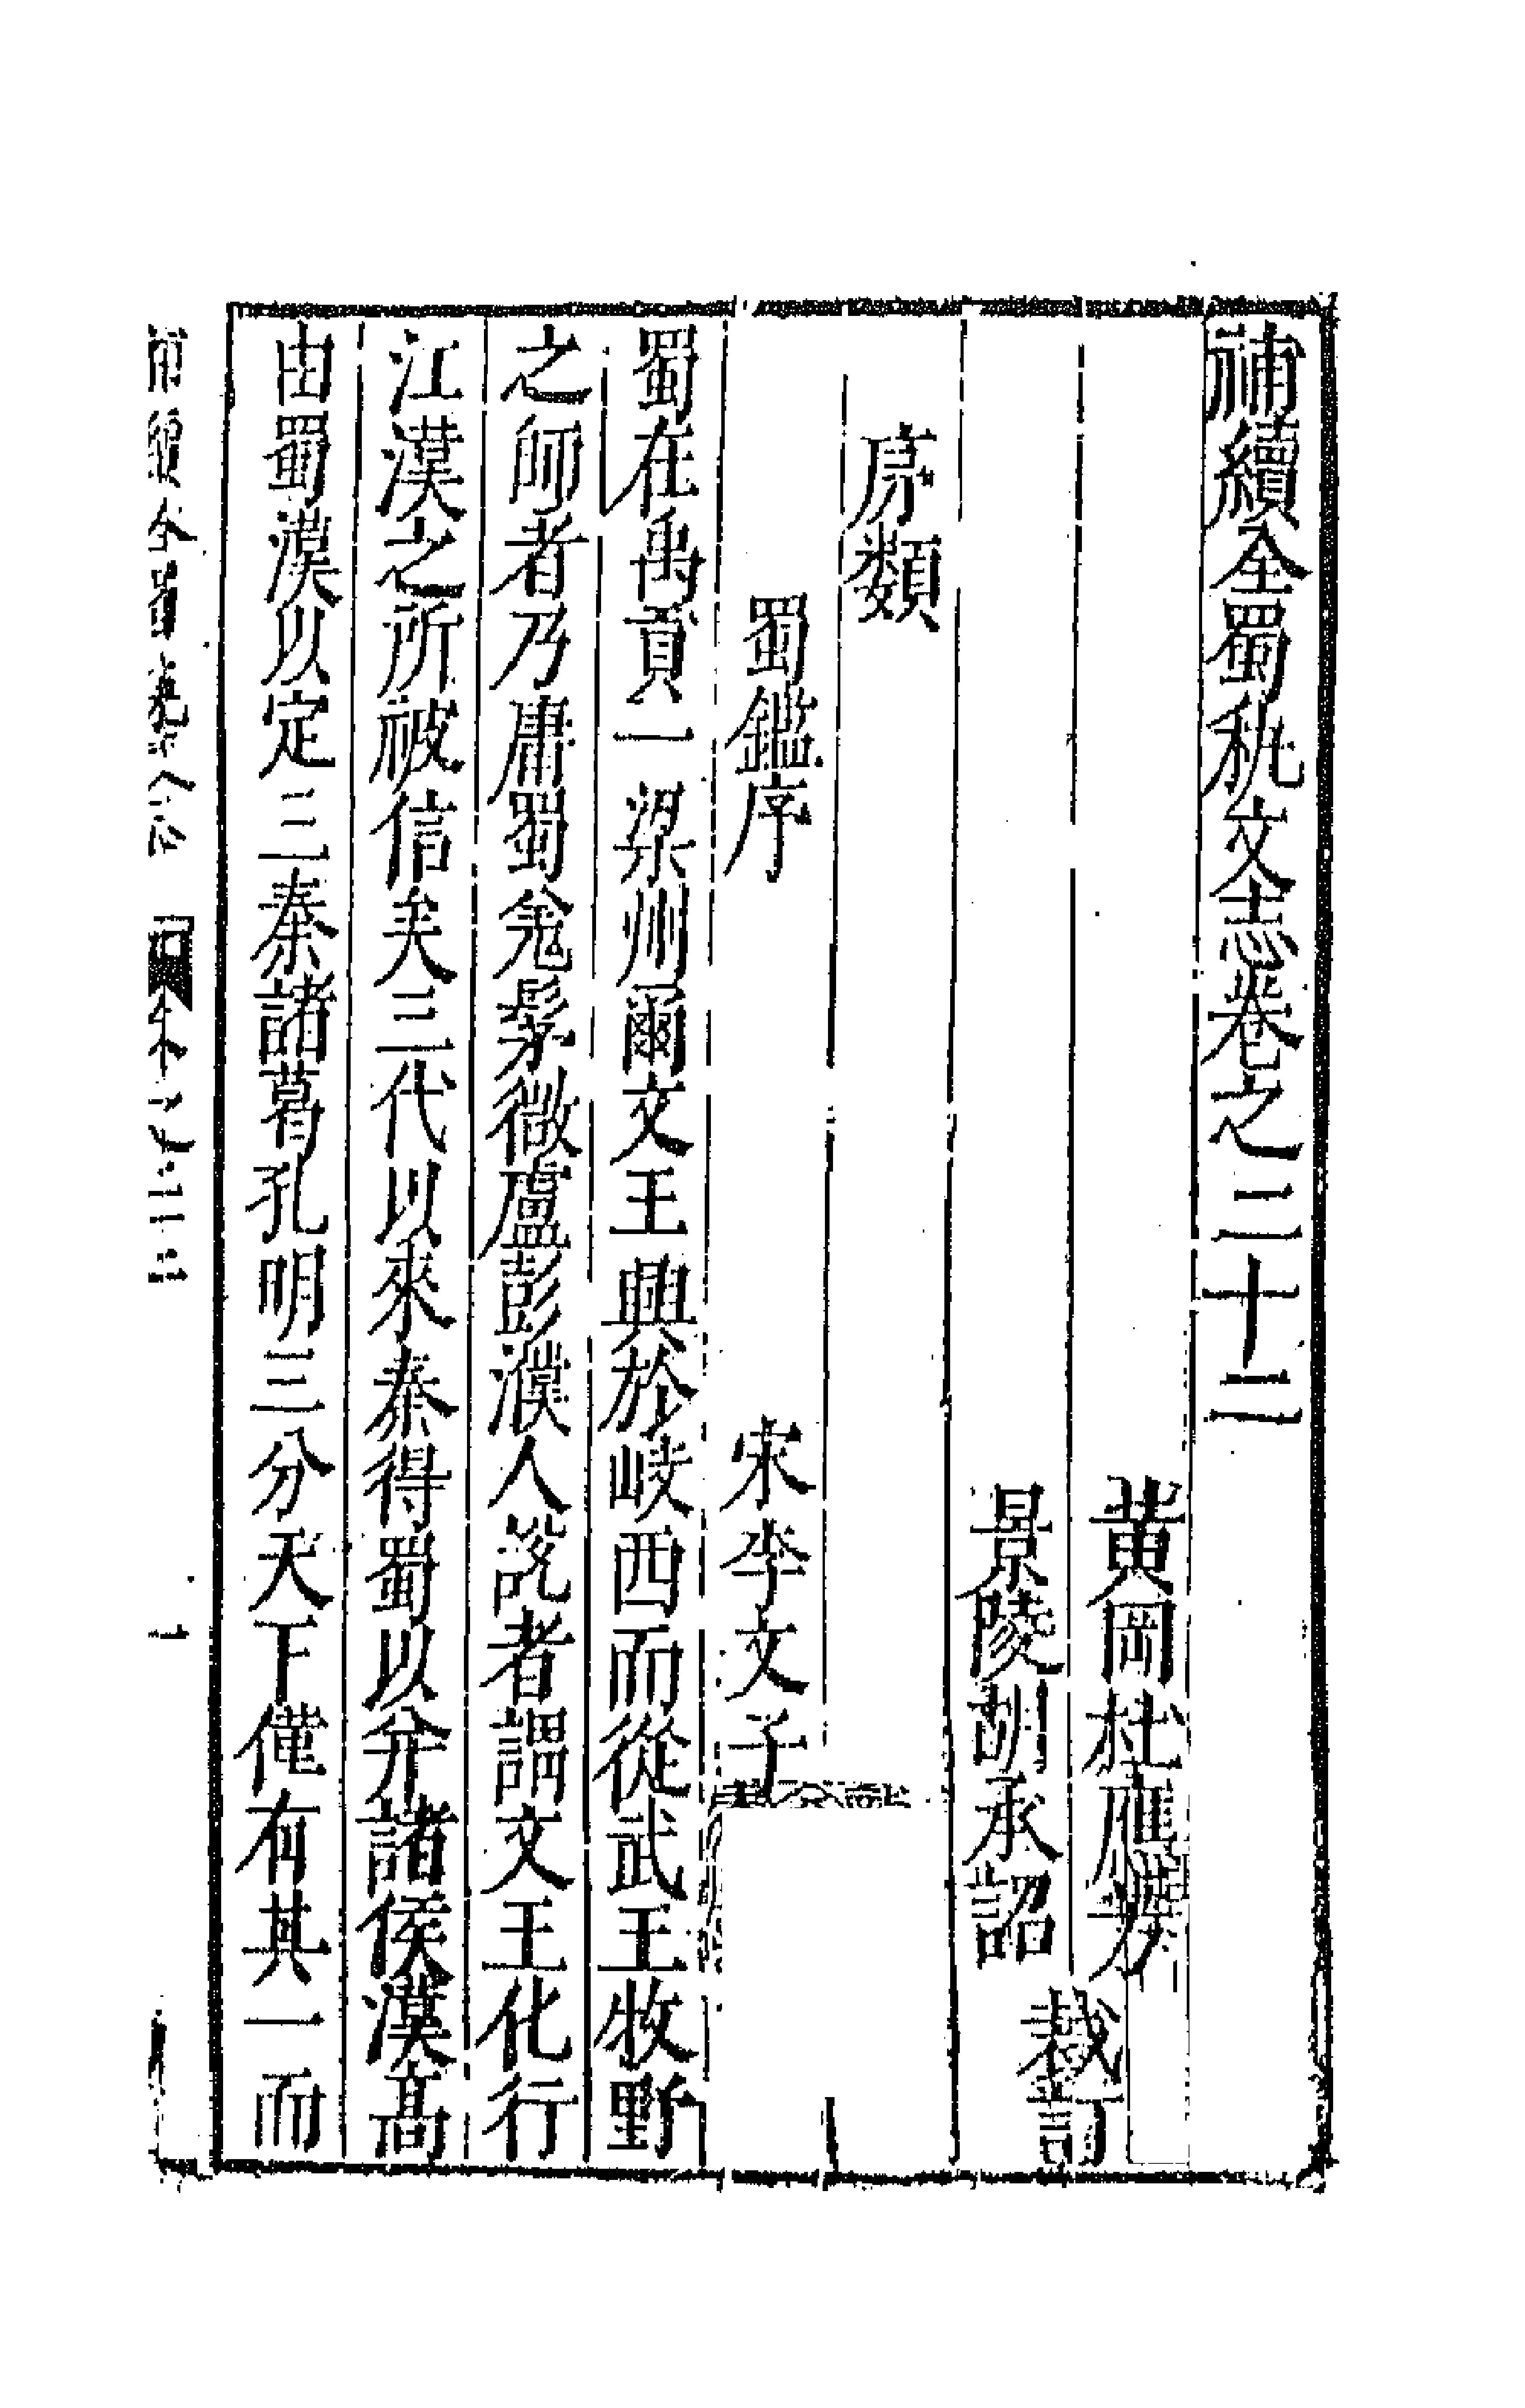 補續全蜀秇文志卷之二十二
黃岡杜應芳
景陵胡承詔
裁訂
序類
蜀鑑序
宋李文子
蜀在禹貢一梁州爾文王興於岐西而從武王牧野
之師者乃庸蜀羌髳微盧彭濮人說者謂文王化行
江漢之所被信矣三代以來秦得蜀以并諸侯漢高
由蜀漢以定三秦諸葛孔明三分天下僅有其一而
卷之二十二
一